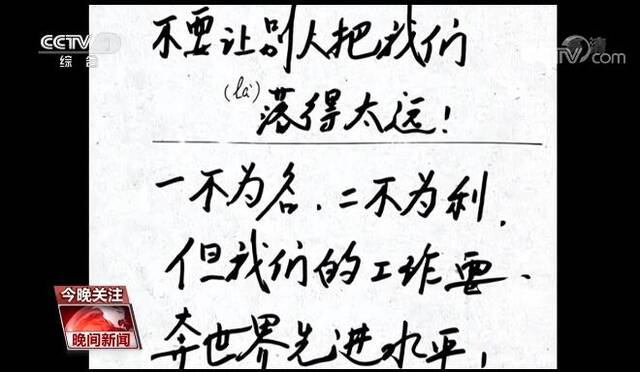 CCTV 1
综合
TV.com
不要让别人把我们
(là)
落得太远！
一不为名、二不为利，
但我们的工作要、
奔世界先进水平，
今晚关注
晚间新闻